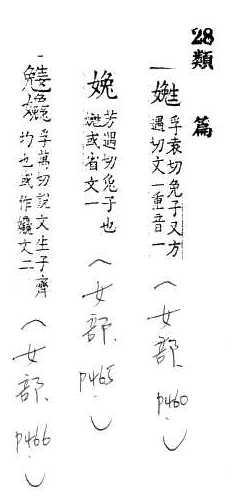 28類篇
孚袁切兔子又方
遇切文一重音一
(女部 p460)
娩 芳遇切兔子也
或省文一
(女部 p465)
嬎 孚萬切說文生子齊
均也或作 文二
(女部 p466)